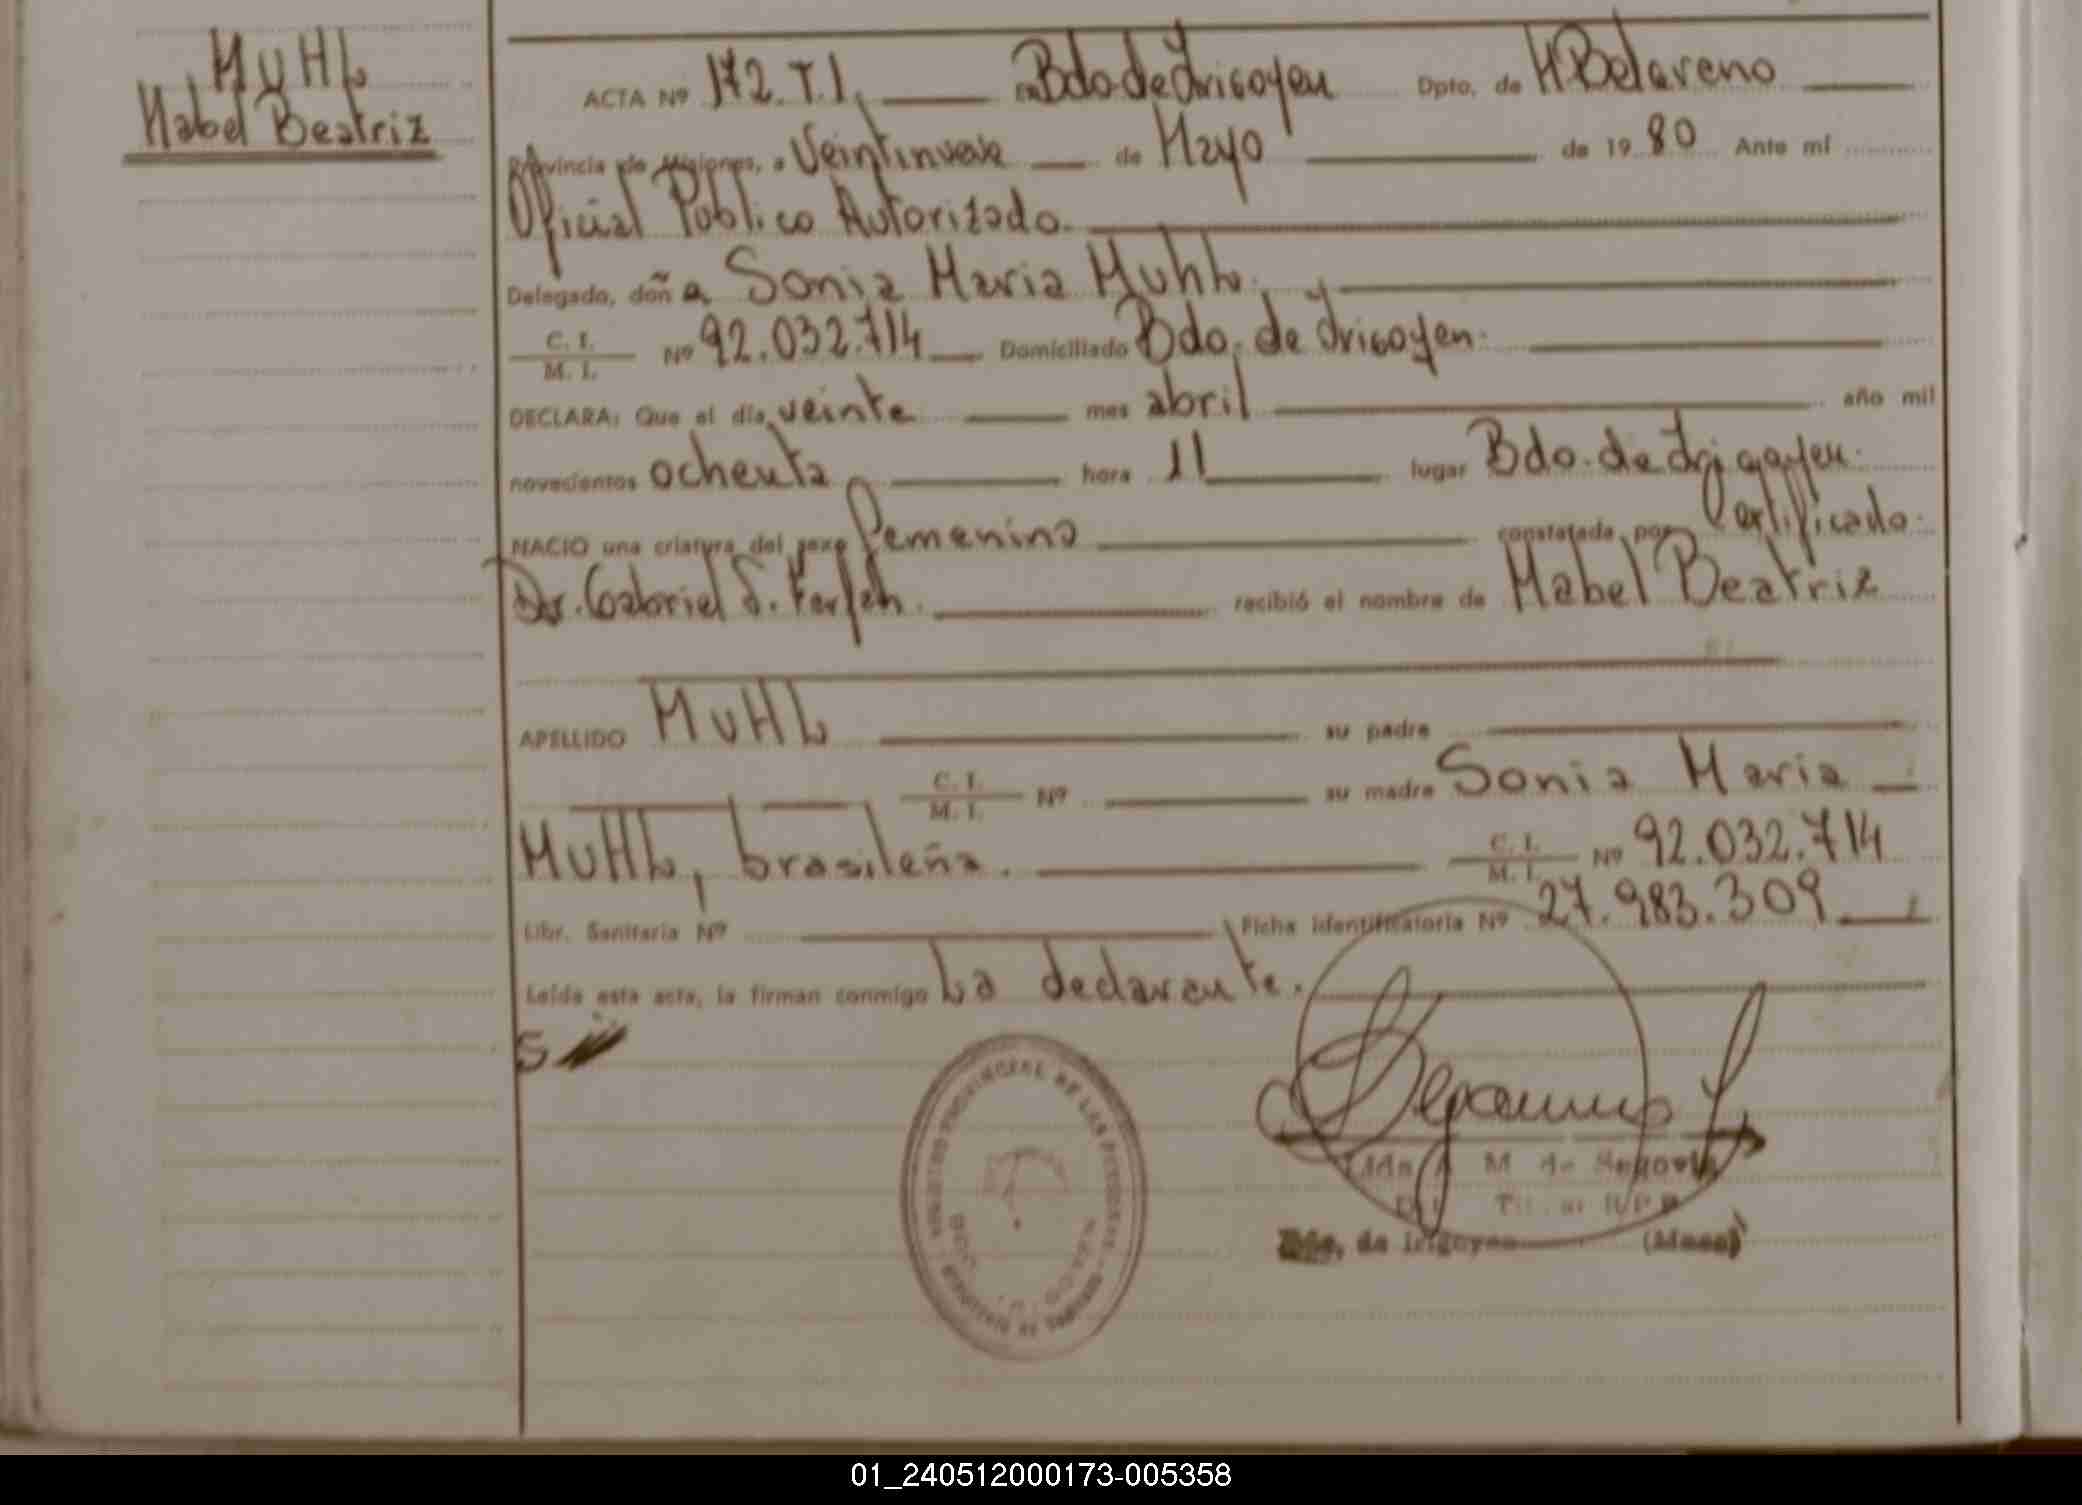 MUHL
Mabel Beatriz
ACTA Nº 172.T.I. en Bdo. de Irigoyen Dpto. de M Belgrano
Provincia de Misiones, a Veintinueve de Mayo de 1980 Ante mí
Oficial Público Autorizado.
Delegado, doña Sonia Maria Muhl.
C. I.
M. I. Nº 92.032.714 Domiciliado Bdo. de Irigoyen.
DECLARA: Que el día veinte mes abril año mil
novecientos ochenta hora 11 lugar Bdo. de Irigoyen.
NACIO una criatura del sexo femenino constatada por Certificado.
Dr. Gabriel S. recibió el nombre de Mabel Beatriz
APELLIDO MUHL su padre
C. I.
M. I. Nº su madre Sonia Maria
MUHL, brasileña. C. I.
M. I. Nº 92.032.714
Libr. Sanitaria Nº Ficha identificatoria Nº 27.983.309
Leída esta acta, la firman conmigo La declarante.
S
REGISTRO PROVINCIAL DE LAS PERSONAS
M. de Segovia
Bdo. de Irigoyen (Mnes)
01_240512000173-005358